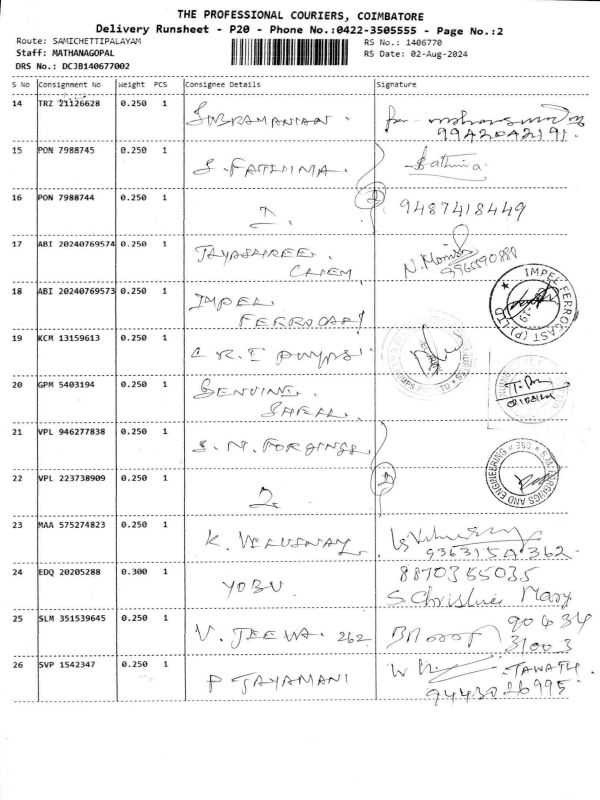 THE PROFESSIONAL COURIERS, COIMBATORE
Delivery Runsheet - P20 - Phone No.:0422-3505555 - Page No.:2
Route: SAMICHETTIPALAYAM
RS No.: 1406770
Staff: MATHANAGOPAL
RS Date: 02-Aug-2024
DRS No.: DCJB140677002
S No Consignment No Weight PCS Consignee Details Signature
14 TRZ 21126628 0.250 1 SUBRAMANIAN.
9942042191
15 PON 7988745 0.250 1 S. FATHIMA. Fathima
16 PON 7988744 0.250 1 2 9487418449
17 ABI 20240769574 0.250 1 JAYASHREE. CHEM N. Monish
9965590888
18 ABI 20240769573 0.250 1 IMPEL FERROCAST
IMPEL FERROCAST (P) LTD
19 KCM 13159613 0.250 1 C R I PUMPS
20 GPM 5403194 0.250 1 GENUINE. SHELL.
21 VPL 946277838 0.250 1 S. N. FORGINGS
S.N. FORGINGS AND ENGINEERING
22 VPL 223738909 0.250 1 2 2
23 MAA 575274823 0.250 1 K. VELUSWAMY
24 EDQ 20205288 0.300 1 YOBU 8870355035
S. Christine Mary
25 SLM 351539645 0.250 1 V. JEEWA. 262 90434
31003
26 SVP 1542347 0.250 1 P JAYAMANI
9443026995